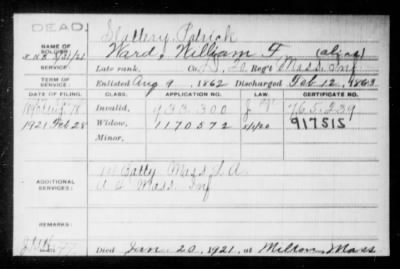 DEAD
Slattery, Patrick
NAME OF SOLDIER:
Ward, William F. (alias)
Late rank, Co. Reg't Mass. Inf
TERM OF SERVICE:
Enlisted Aug 9, 1862 Discharged Feb 12, 1863
DATE OF FILING. CLASS. APPLICATION NO. LAW. CERTIFICATE NO.
Invalid, 933.300 765.239
1921 Feb 28 Widow, 1170572 917515
Minor,
ADDITIONAL SERVICES:
Batty Mass L. A.
Mass. Inf
REMARKS:
Died Jan. 20, 1921, at Milton, Mass